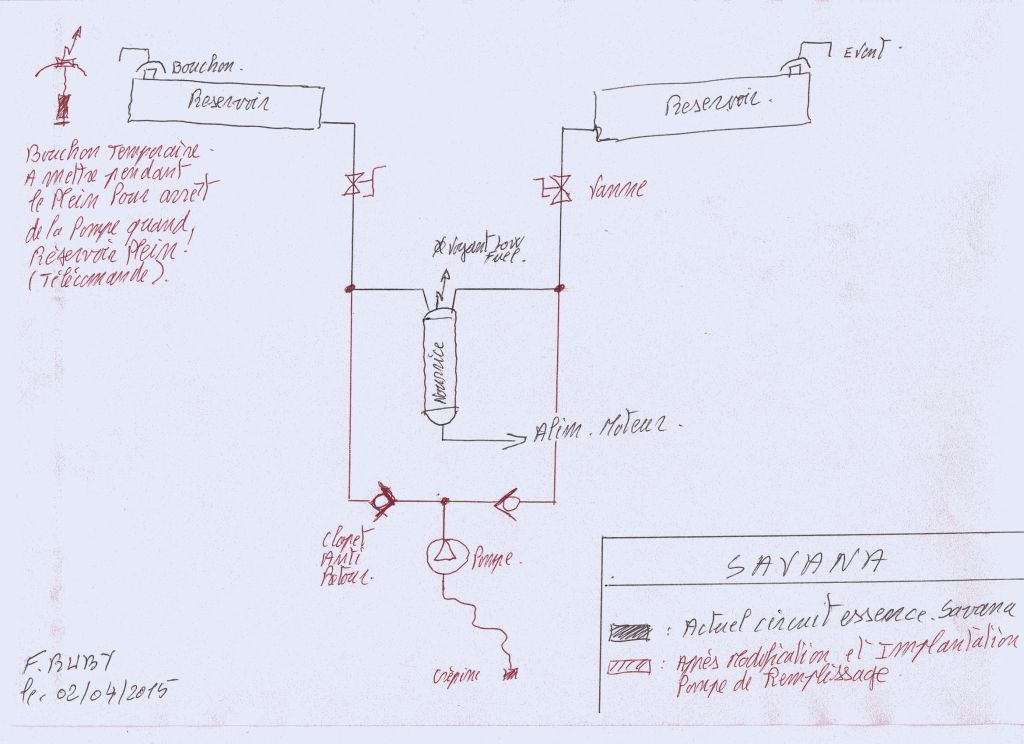 Bouchon.
Event.
Reservoir
Reservoir.
Bouchon Temporaire.
A mettre pendant
le Plein Pour arrêt
de la Pompe quand,
Réservoir Plein!
(Télécomande).
Vanne
Voyant Low
Fuel.
Nourrice
Alim. Moteur.
Clapet
Anti
Retour.
Pompe.
Crépine
SAVANA
: Actuel circuit essence. Savana
: Après Modification et Implantation
Pompe de Remplissage.
F. BUBY
le. 02/04/2015